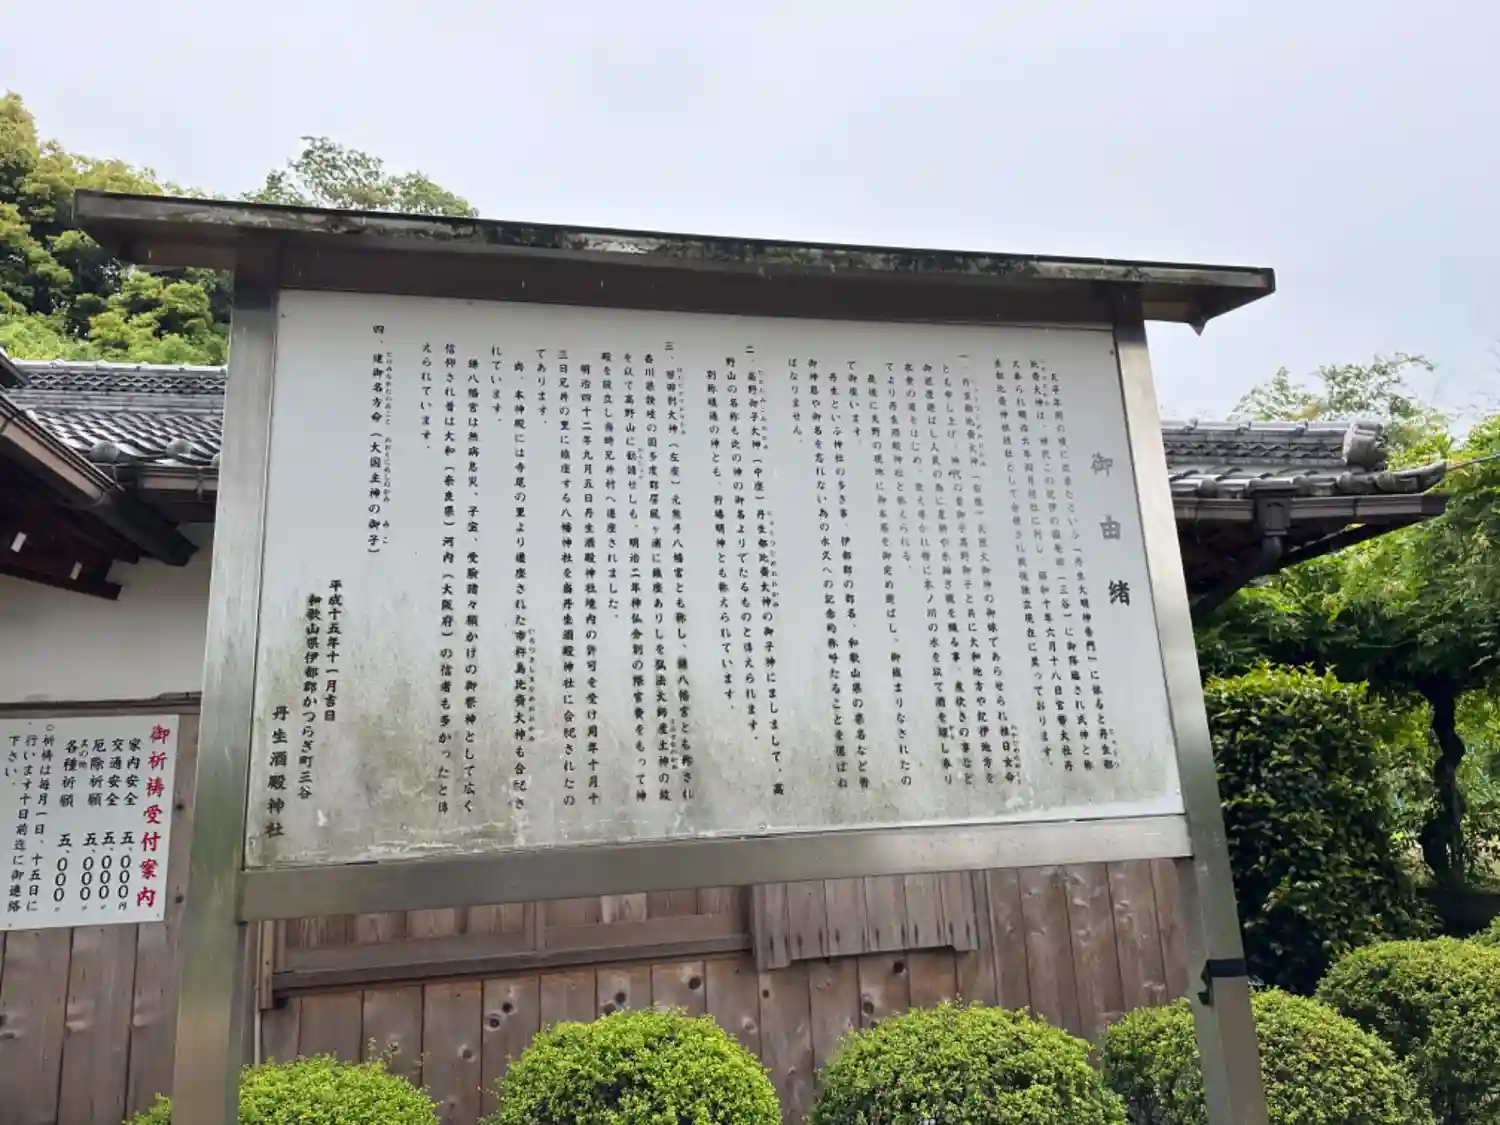 御由緒
天平年間の頃に出来たという『丹生大明神告門』に依ると丹生都
比賣大神は、神代この紀伊の国奄田（三谷）に御降臨され
明治六年四月村社に列し、昭和十年六月十八日官幣大社丹
生都比賣神社摂社として合併され戦後独立現在に至っております。
一、丹生都比賣大神（右座）天照大御神の御妹であらせられ稚日女命
とも申し上げ、神代の昔御子高野御子と共に大和地方や紀伊地方を
御巡遊ばし人民の為に農耕や糸紬ぎ機を織る事、煮炊きの事など
衣食の道をはじめ、教え導かれ特に木ノ川の水を以て酒を醸し奉り
てより丹生酒殿神社と称えられる。
最後に天野の現地に御本居を御定め遊ばし、御鎮まりなされたの
で御座います。
丹生という神社の多き事、伊都郡の郡名、和歌山県の県名など皆
御神恩や御名を忘れない為の永久への記念的称呼たることを偲ばね
ばなりません。
二、高野御子大神（中座）丹生都比賣大神の御子神にましまして、高
たかのみこおおかみ
野山の名称も此の神の御名よりでたるものと傳えられます。
別称曉通の神とも、狩場明神とも称えられています。
三、譽田別大神（左座）元熊手八幡宮とも称し、鎌八幡宮とも称され
香川県讃岐の国多度郡屏風ヶ浦に鎮座ありしを弘法大師産土神の故
を以て高野山に勧請せしも、明治二年神仏分別の際官費をもって神
殿を設立し当時兄井村へ遷座されました。
明治四十二年九月五日丹生酒殿神社境内の許可を受け同年十月十
三日兄井の里に鎮座する八幡神社を当丹生酒殿神社に合祀されたの
であります。
尚、本神殿には寺尾の里より遷座された市杵島比賣大神も合祀さ
れています。
鎌八幡宮は無病息災、子宝、受験諸々願かけの御祭神として広く
信仰され昔は大和（奈良県）河内（大阪府）の信者も多かったと傳
えられています。
四、建御名方命（大国主神の御子）
たけみなかたのみこと　おおくにぬしのかみ　みこ
平成十五年十一月吉日
和歌山県伊都郡かつらぎ町三谷
丹生酒殿神社
御祈祷受付案内
家内安全　五、000円
交通安全　五、000〃
厄除祈願　五、000〃
その他
各種祈願　五、000〃
○祈祷は毎月一日、十五日に
行います十日前迄に御連絡
下さい。